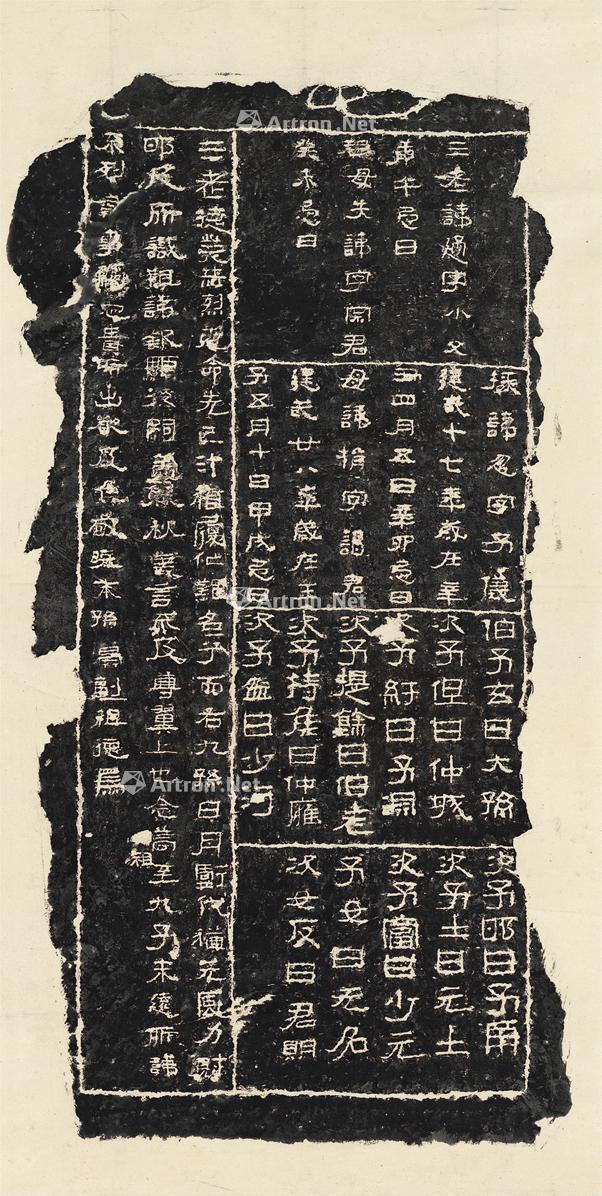 三老諱通字小父
庚午忌日
祖母失諱字宗君
癸未忌日
掾諱忽字子儀
建武十七年歲在辛
丑四月五日辛卯忌日
母諱捐字謁君
建武廿八年歲在壬
子五月十日甲戌忌日
伯子玄曰大孫
次子但曰仲城
次子紆曰子淵
次子提餘曰伯老
次子持侯曰仲雍
次子盆曰少河
次子邯曰子南
次子士曰元士
次子富曰少元
子女曰无名
次女反曰君明
三老德業赫烈克命先己汁稽履仁難名兮而右九孫日月虧代猶元風力射
邯及所識祖諱欽顯後嗣蓋春秋義言不及尊翼上也念高祖至九子未遠所諱
不列言事觸忌貴所出嚴及敬曉末孫冀副祖德焉
Artron.Net
Artron.Net
Artron.Net